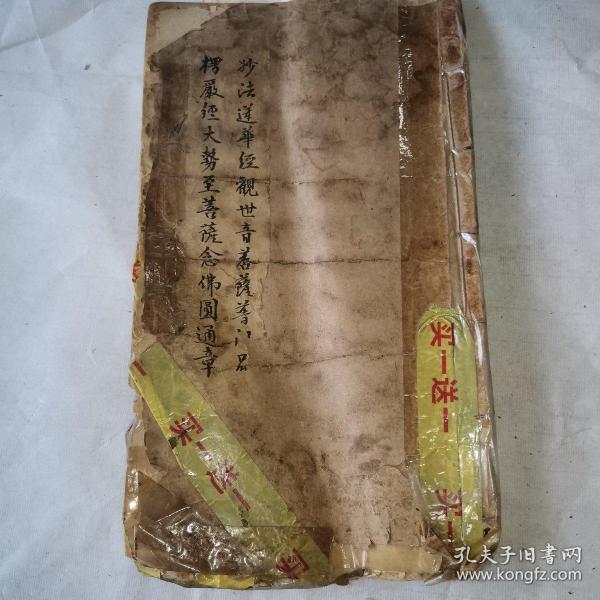 妙法蓮華經觀世音菩薩普門品
楞嚴經大勢至菩薩念佛圓通章
买一送一
买一
买一送一
买
孔夫子旧书网
www.kongfz.com